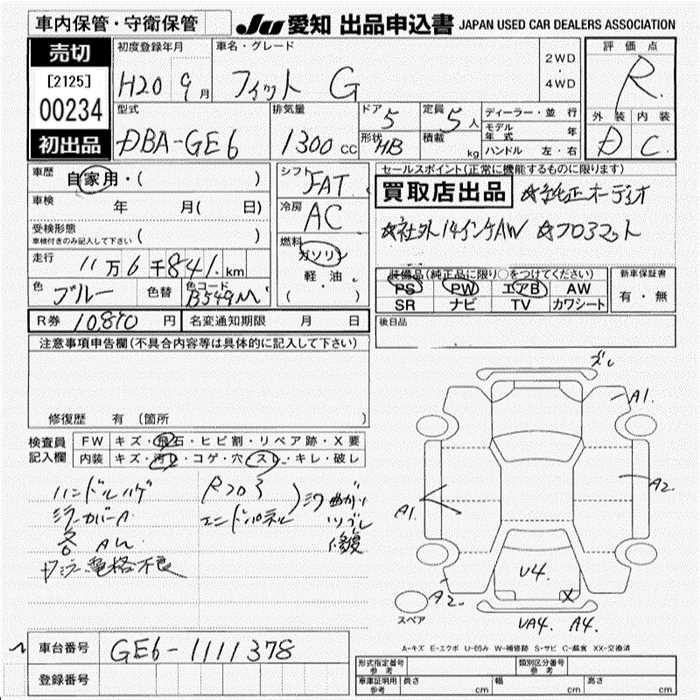 車内保管・守衛保管
JU 愛知 出品申込書 JAPAN USED CAR DEALERS ASSOCIATION
売切
[2125]
00234
初出品
初度登録年月
H20 9月
車名・グレード
フィット G
2WD
・
4WD
評価点
R
型式
DBA-GE6
排気量
1300 CC
ドア 5
定員 5人
形状 HB
積載 kg
ディーラー・並行
モデル年式 年
ハンドル 左・右
外装 内装
D C
車歴
自家用・( )
車検 年 月( 日)
受検形態
車検付きのみ記入して下さい ( )
走行
11万6千841km
色
ブルー
色替
色コード
B549M
シフト
FAT
冷房
AC
燃料
ガソリン
軽・油
( ・ )
セールスポイント(正常に機能するものに限ります)
買取店出品 ☆純正オーディオ
☆社外14インチAW ☆フロアマット
装備品(純正品に限り○をつけてください)
PS PW エアB AW
SR ナビ TV カワシート
新車保証書
有・無
R券 10,870円
名変通知期限 月 日
後日品
注意事項申告欄(不具合内容等は具体的に記入して下さい)
修復歴 有 (箇所 )
検査員
記入欄
FW キズ・飛石・ヒビ割・リペア跡・X要
内装 キズ・汚レ・コゲ・穴・スレ・キレ・破レ
ハンドルハゲ
ミラーカバーA
各AU
R203
エンドパネル
曲がり
修復
ズレ
A1.
A2.
A1.
A2.
U4.
X
UA4. A4.
スペア
A=キズ E=エクボ U=凹み W=補修跡 S=サビ C=腐食 XX=交換済
車台番号
GE6-1111378
登録番号
形式指定番号
参考
類別区分番号
参考
車庫証明用
参考
長さ cm
幅 cm
高さ cm